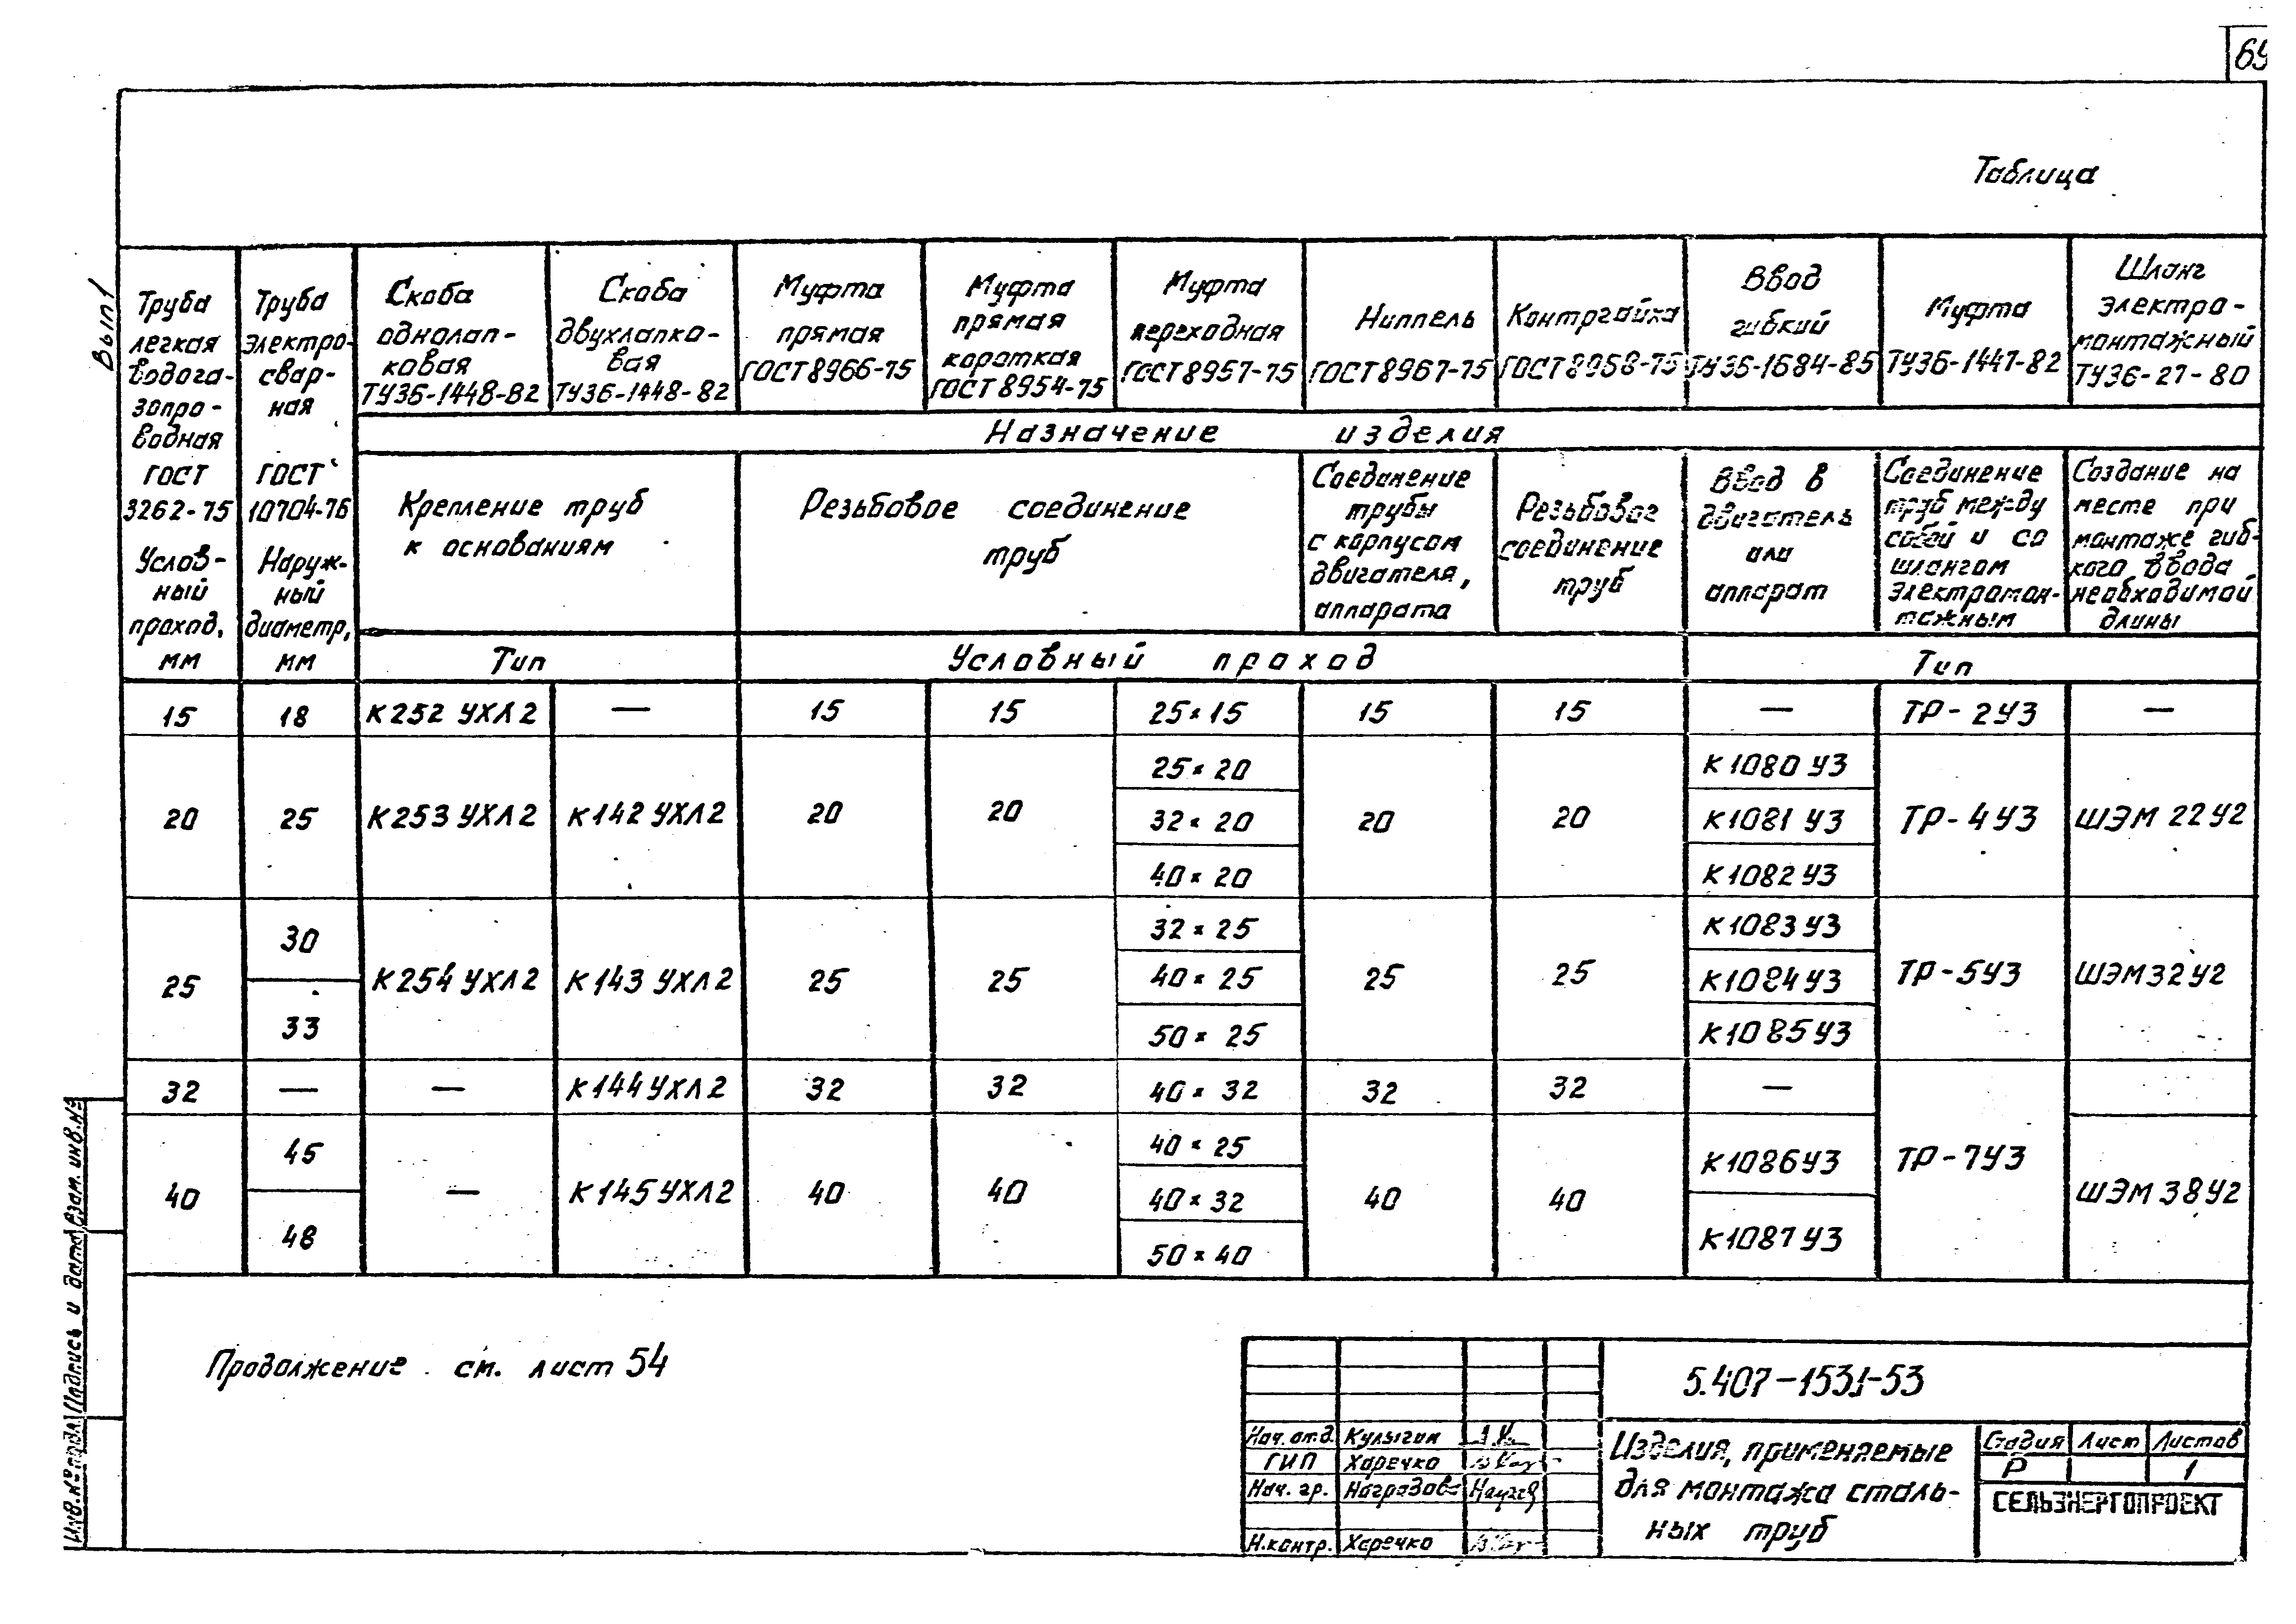 69
Таблица
Вып 1
Труба
легкая
водога-
зопро-
водная
ГОСТ
3262-75
Услов-
ный
проход,
мм
Труба
электро-
свар-
ная
ГОСТ
10704-76
Наруж-
ный
диаметр,
мм
Скоба
однолап-
ковая
ТУ36-1448-82
Скоба
двухлапко-
вая
ТУ36-1448-82
Муфта
прямая
ГОСТ 8966-75
Муфта
прямая
короткая
ГОСТ 8954-75
Муфта
переходная
ГОСТ 8957-75
Ниппель
ГОСТ 8967-75
Контргайка
ГОСТ 8968-75
Ввод
гибкий
ТУ36-1684-85
Муфта
ТУ36-1447-82
Шланг
электро-
монтажный
ТУ36-27-80
Назначение изделия
Крепление труб
к основаниям
Резьбовое соединение
труб
Соединение
трубы
с корпусом
двигателя,
аппарата
Резьбовое
соединение
труб
Ввод в
двигатель
или
аппарат
Соединение
труб между
собой и со
шлангом
электромон-
тажным
Создание на
месте при
монтаже гиб-
кого ввода
необходимой
длины
Тип
Условный проход
Тип
15 18 К252 УХЛ2 — 15 15 25×15 15 15 — ТР-2У3 —
20 25 К253 УХЛ2 К142 УХЛ2 20 20 25×20 20 20 К1080 У3 ТР-4У3 ШЭМ 22У2
32×20 К1081 У3
40×20 К1082 У3
25 30 К254 УХЛ2 К143 УХЛ2 25 25 32×25 25 25 К1083 У3 ТР-5У3 ШЭМ32У2
40×25 К1084 У3
33 50×25 К1085 У3
32 — — К144 УХЛ2 32 32 40×32 32 32 —
40 45 — К145 УХЛ2 40 40 40×25 40 40 К1086У3 ТР-7У3 ШЭМ 38У2
40×32
48 50×40 К1087 У3
Продолжение см. лист 54
Инв.№ подл. Подпись и дата Взам. инв.№
5.407-153.1-53
Нач. отд. Кулыгин
ГИП Харечко
Нач. гр. Наградова
Н.контр. Харечко
Изделия, применяемые
для монтажа сталь-
ных труб
Стадия Лист Листов
Р 1
СЕЛЬЭНЕРГОПРОЕКТ